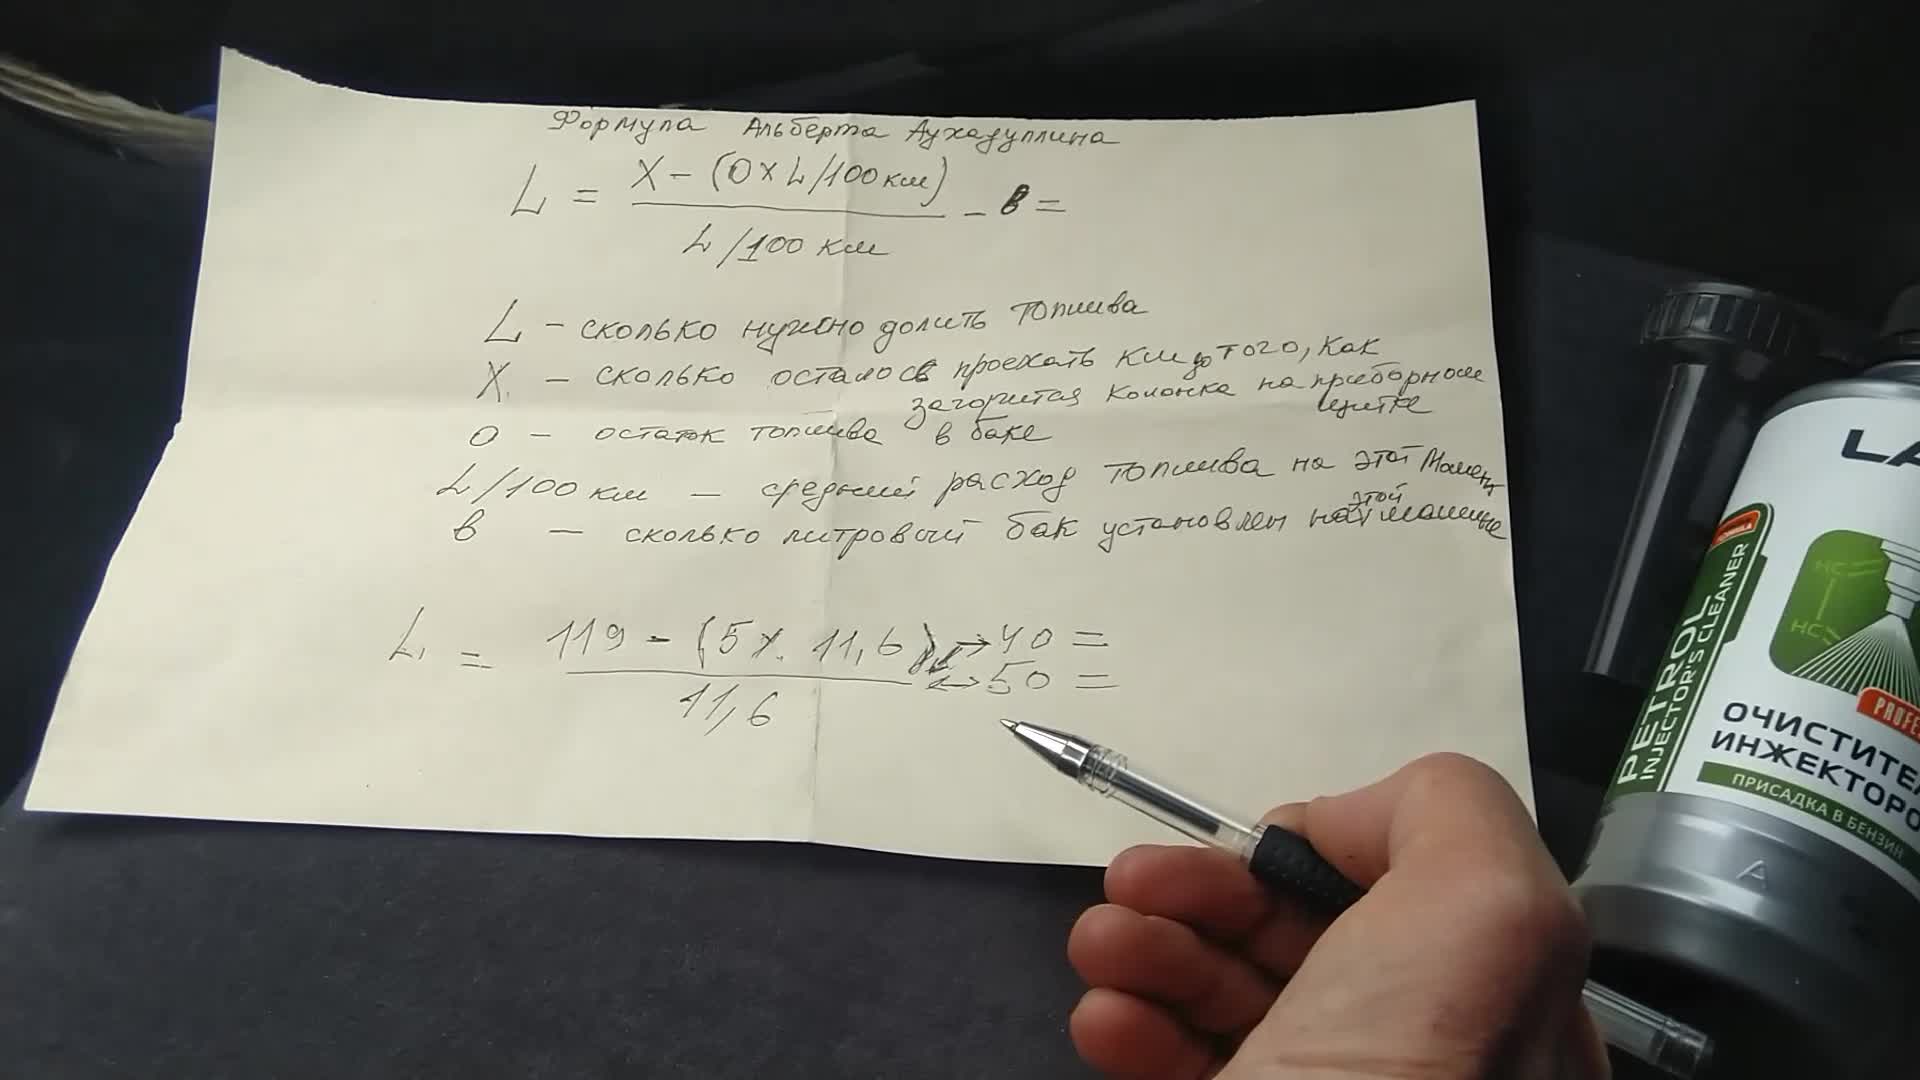 Формула Альберта Аухадуллина
L = X - (O x L/100 км) / L/100 км - в =
L - сколько нужно долить топлива
X - сколько осталось проехать км до того, как
загорится колонка на приборном
щитке
O - остаток топлива в баке
L/100 км - средний расход топлива на этот момент
в - сколько литровый бак установлен на этой машине
L = 119 - (5 x 11,6) / 11,6
↔ 40 =
↔ 50 =
LA
PETROL
INJECTOR'S CLEANER
HC
HC
PROFES
ОЧИСТИТЕЛ
ИНЖЕКТОРО
ПРИСАДКА В БЕНЗИН
A